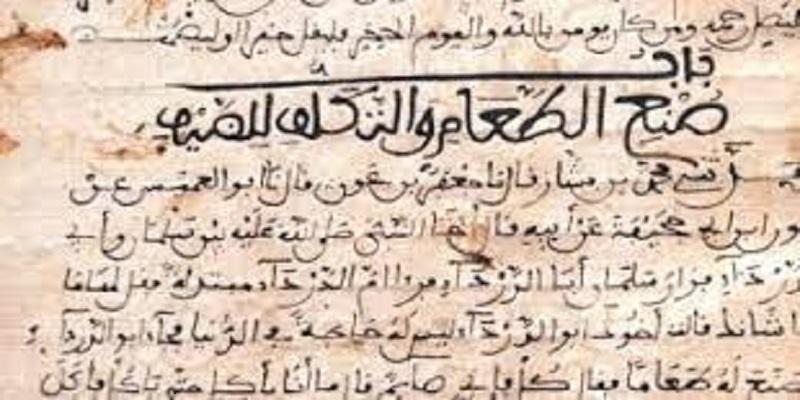 فليصل رحمه ومن كان يومن بالله واليوم الاخر فليقل خيرا او ليصمت
باب
صُنع الطَّعَام والتكلف للضيف
محمد بن بشار قال نا جعفر بن عون قال نا ابو العميس عن
عون ابن ابي جحيفة عن ابيه قال اخا النبي صلى الله عليه بين سلمان وأبي
الدرداء فزار سلمان أبا الدرداء فرءا ام الدرداء متبذلة فقال لها ما
شانك قالت اخوك ابو الدرداء ليس له حاجة في الدنيا فجاء ابو الدرداء
فصنع له طعاما فقال كل فإني صايم قال ما أنا بآكل حتى تاكل فأكل